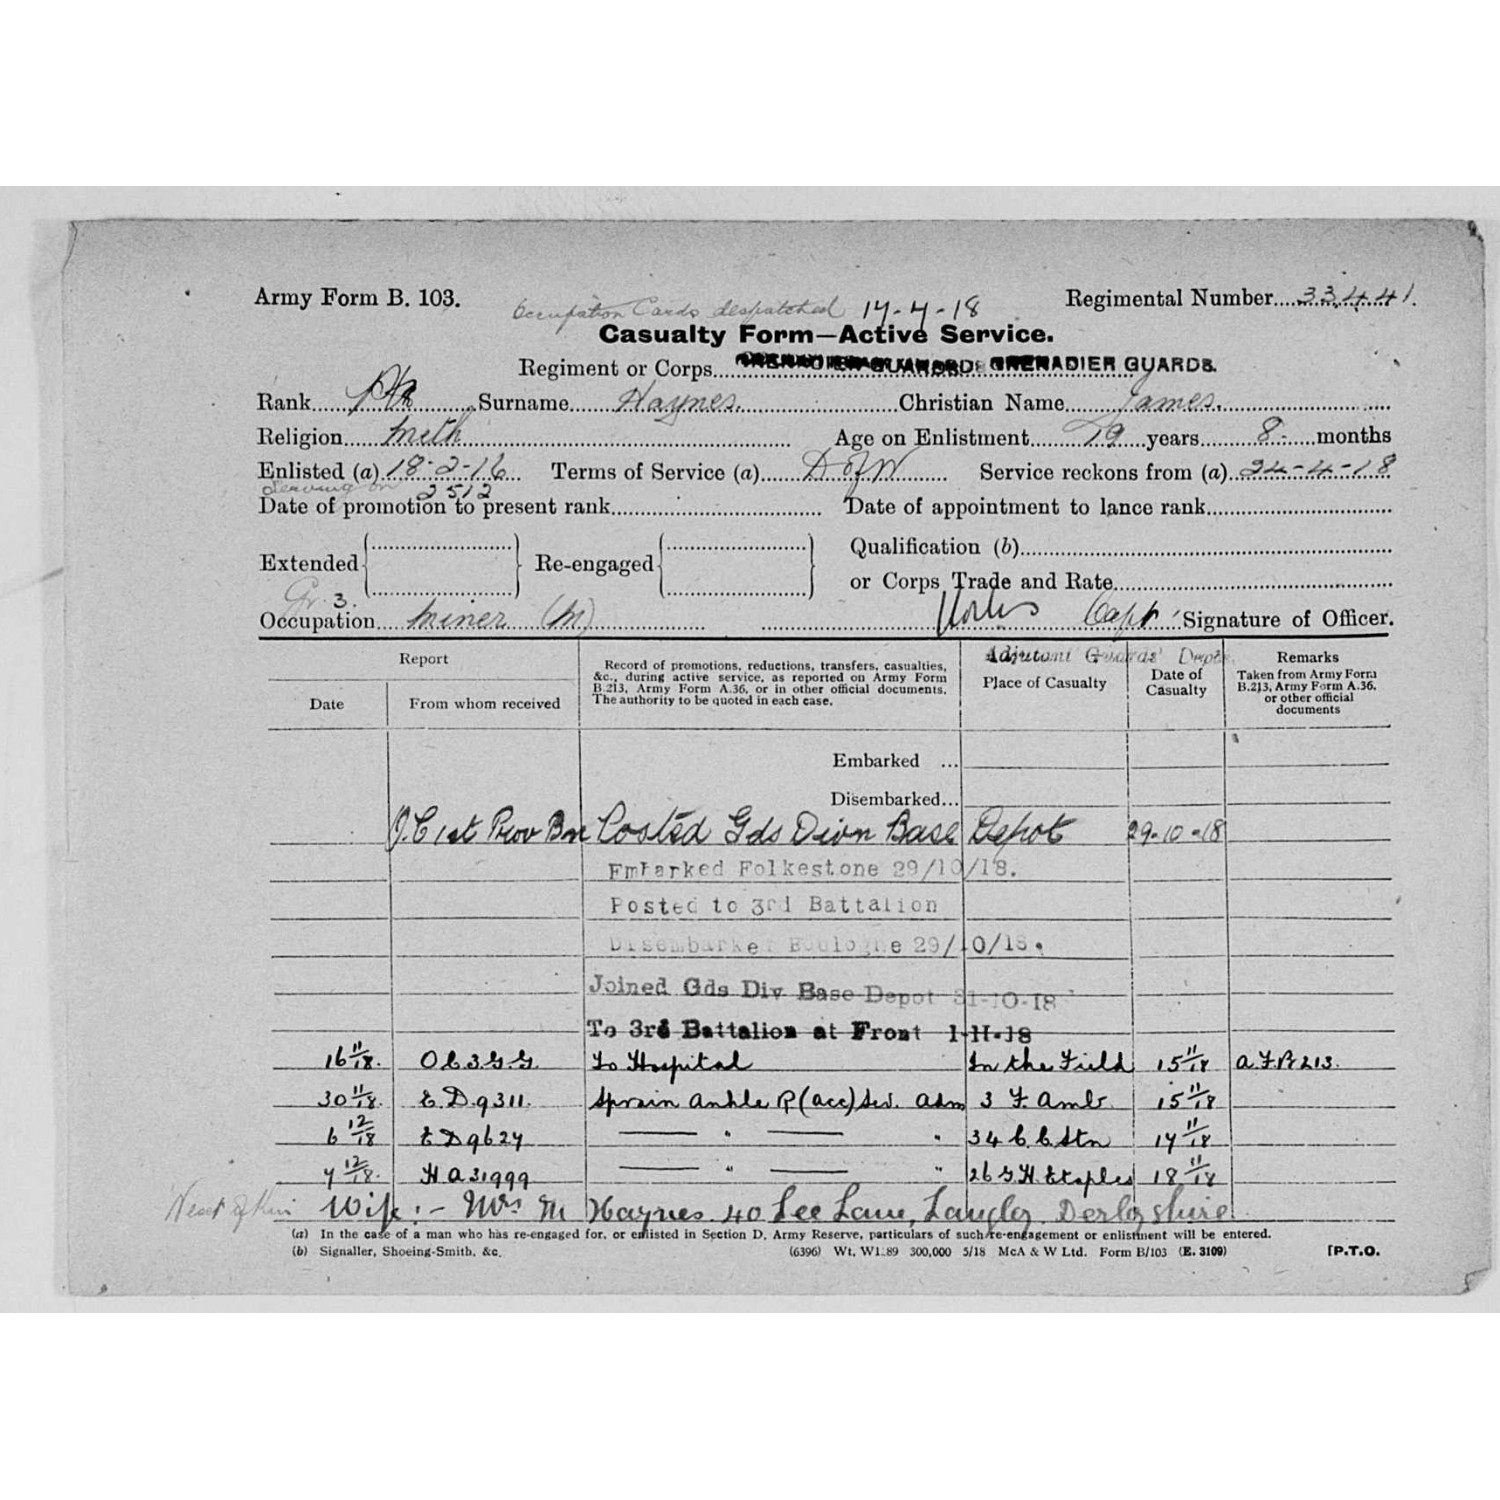 Army Form B. 103.
Occupation Cards despatched 17-7-18
Regimental Number 33441.
Casualty Form—Active Service.
Regiment or Corps GRENADIER GUARDS.
Rank Pte Surname Haynes. Christian Name James.
Religion Meth Age on Enlistment 19 years 8 months
Enlisted (a) 18-2-16 Terms of Service (a) D of W Service reckons from (a) 24-4-18
Date of promotion to present rank Date of appointment to lance rank
Extended Re-engaged Qualification (b)
or Corps Trade and Rate
Gr. 3.
Occupation Miner (M) Capt Signature of Officer.
Adjutant Guards' Depot.
Report
Date
From whom received
Record of promotions, reductions, transfers, casualties, &c., during active service, as reported on Army Form B.213, Army Form A.36, or in other official documents. The authority to be quoted in each case.
Place of Casualty
Date of Casualty
Remarks
Taken from Army Form B.213, Army Form A.36, or other official documents
Embarked ...
Disembarked...
O.C 1st Prov Bn Posted Gds Divn Base Depot 29-10-18
Embarked Folkestone 29/10/18.
Posted to 3rd Battalion
Disembarked Boulogne 29/10/18.
Joined Gds Div Base Depot 31-10-18
To 3rd Battalion at Front 1-11-18
16 11/18. O C 3 G G To Hospital In the Field 15 11/18 A.F.B 213.
30 11/18. E.D.9311. Sprain Ankle R (acc) Sev. Adm 3 F. Amb. 15 11/18
6 12/18 E D 9627 — " — " 34 C. C Stn 17 11/18
7 12/18. H A 31999 — " — " 26 G.H. Etaples 18 11/18
Next of Kin Wife :- Mrs M Haynes. 40 Lee Lane, Langley. Derbyshire
(a) In the case of a man who has re-engaged for, or enlisted in Section D, Army Reserve, particulars of such re-engagement or enlistment will be entered.
(b) Signaller, Shoeing-Smith, &c.
(6396) Wt. W1.89 300,000 5/18 McA & W Ltd. Form B/103 (E. 3109)
[P.T.O.